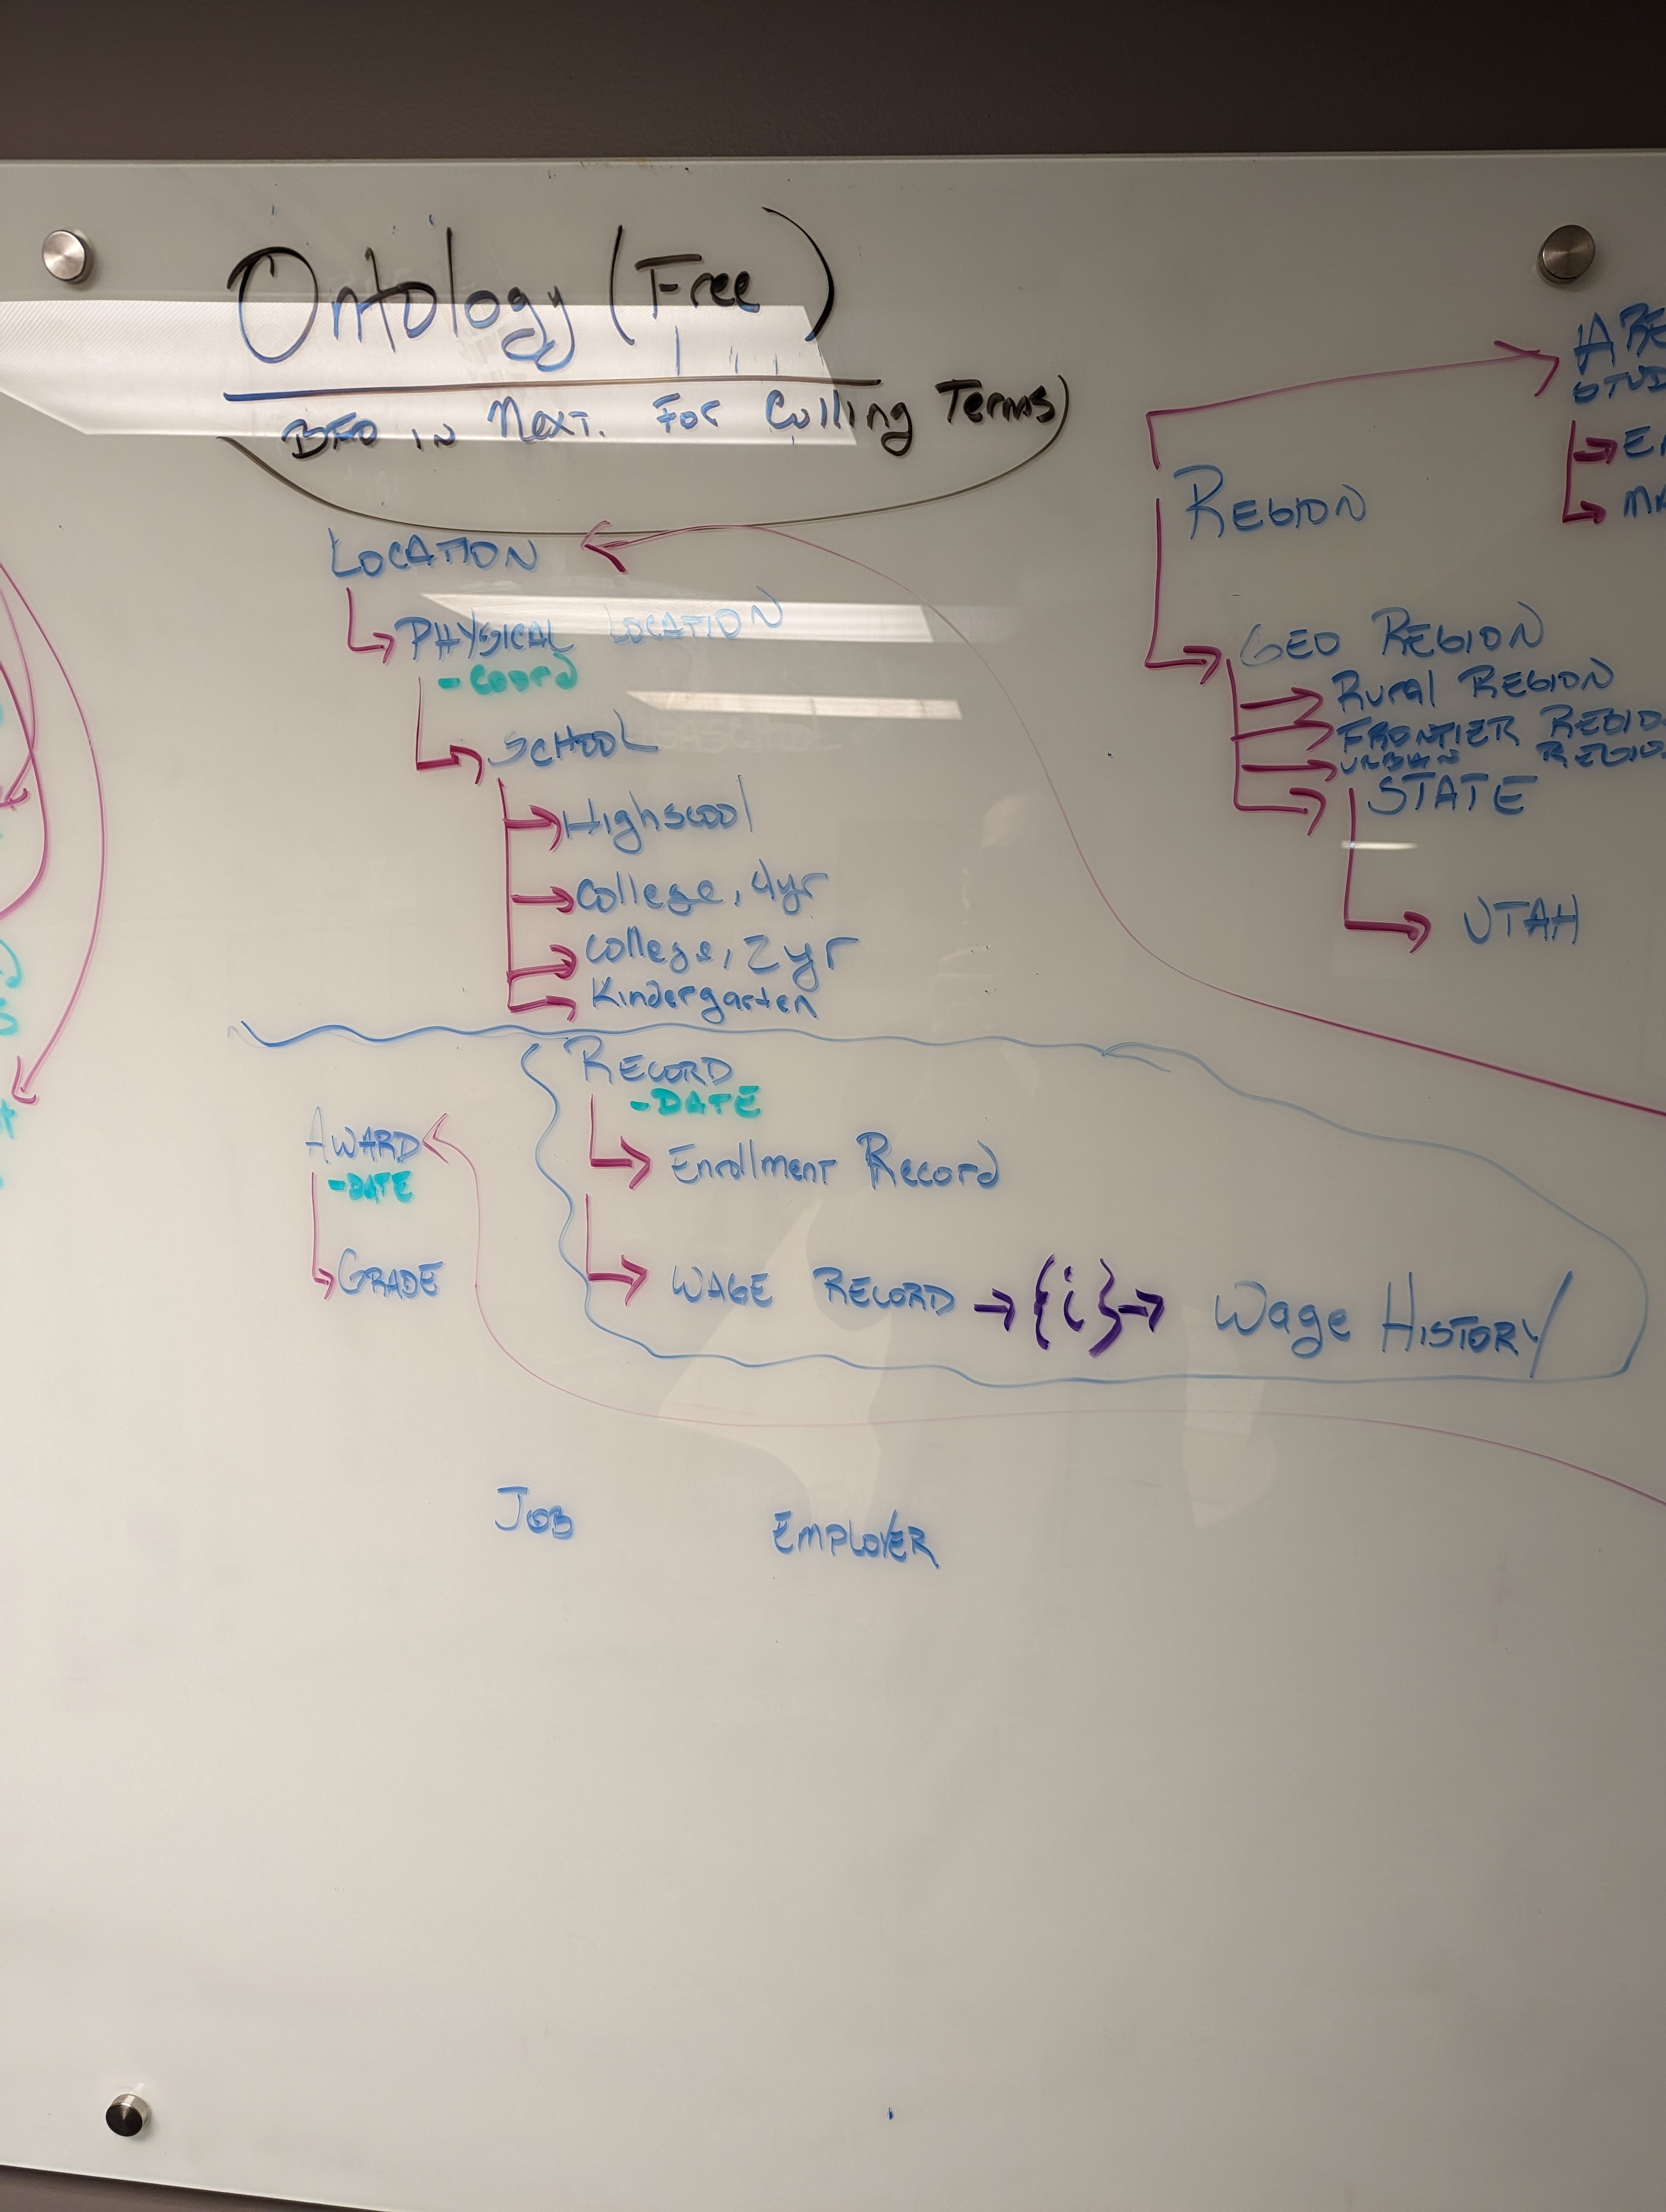 Ontology (Free)
BFO in Next. For Culling Terms)
LOCATION
PHYSICAL LOCATION
- COORD
SCHOOL
Highscool
College, 4yr
College, 2yr
Kindergarten
REGION
GEO REGION
Rural REGION
FRONTIER REGIO
URBAN REGIO
STATE
UTAH
RECORD
- DATE
Enrollment Record
WAGE RECORD → {i} → Wage HISTORY
AWARD
- DATE
GRADE
JOB
EMPLOYER